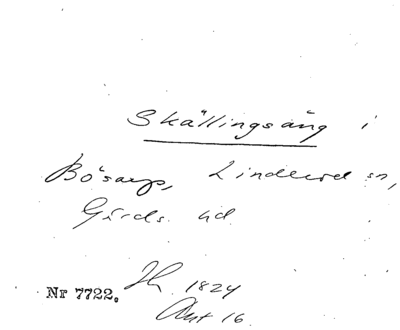 Skällingsäng i
Bösarp, Linderöd sn,
Gärds hd
Nr 7722.
1824
Akt 16.